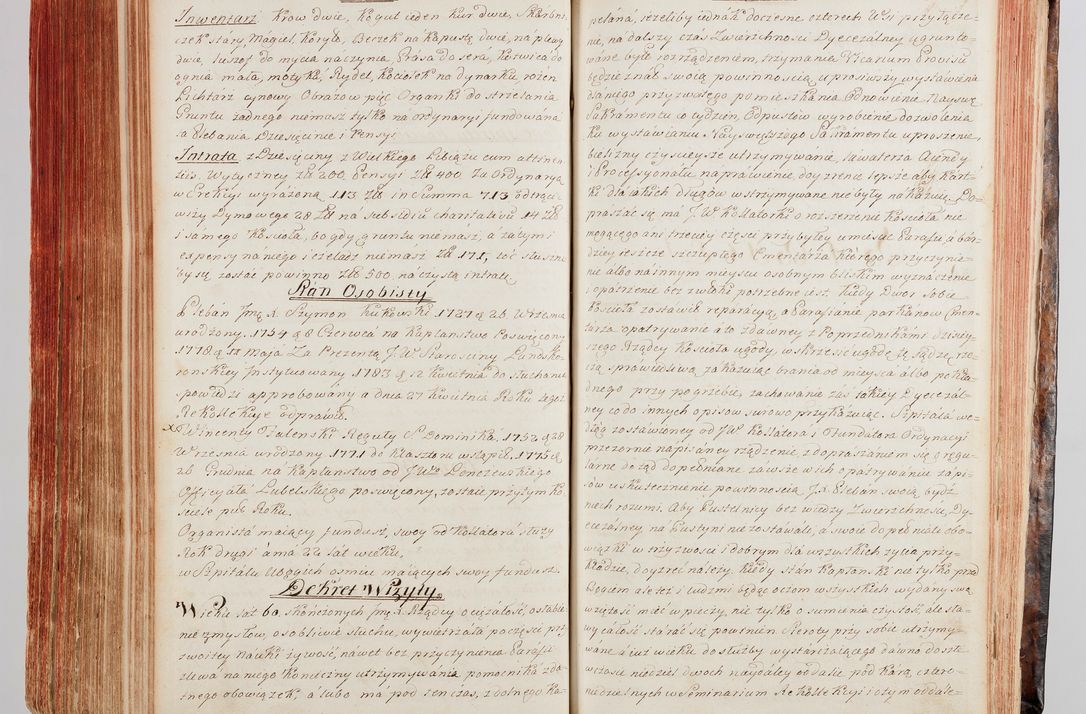 Inwentarz Krow dwie, Kogut ieden kur dwie, Skrzyni
czek stary, Magiel, Koryto, Beczek na Kapustę dwie, na plewy
dwie, suszot do mycia naczynia, Prasa do sera, Kozwica do
ognia mała, motyka, Rydel, Kociołek na dynarku rozen
Lichtarz cynowy Obrazow pięć Organki do strzelania
Gruntu zadnego niemasz tylko na ordynaryi fundowana
a Plebania Dziesięcinie i Pensyi
Intrata z Dziesięciny z Wielkiego Libiąża cum attinen
tiis. Wytyczney zł 200. Pensyi zł 400 za Ordynaryą
w Erekcyi wyrażoną 113 zł in Summa 713 odtrąci-
wszy Dymowego 28 zł na Subsidiu charitativu 14 zł
i samego Kościoła, bo gdy gruntu niemasz, a zatym i
expensy na niego i czeladz niemasz zł 171, toć słuszni
by się zostać powinno zło 500 na czystą intratę
Stan Osobisty
Pleban Jmę X Szymon Kukowski 1727 d 26 Września
urodzony. 1754 d 8 Czerwca na Kapłanstwo Poswięcony
1778 d 17 Maja Za Prezentą J.W. Starosciny Landsko-
ronskiey Instytuowany 1783 d 12 Kwietnia do słuchania
spowiedzi approbowany a dnia 27 Kwietnia Roku tegoż
Rekollekcye odprawił.
x Wincenty Zalenski Reguły S. Dominika 1752 d 28
Września urodzony 1771 do Klasztoru wstąpił 1775 d
26 Grudnia na Kapłanstwo od JWo Donczewskiego
Officyała Lubelskiego poswięcony, zostaie przy tym Ko
sciele puł Roku.
Organista maiący fundusz swoy od Kollatora służy
Rok drugi a ma 22 lat wieku,
w Szpitalu Ubogich osmiu maiących swoy fundusz
Dekret Wizyty.
Wieku lat 60 skończonych Jmę X. Rządcy ociężałość, osłabie
nie zmysłow, osobliwie słuchu, wywietrzała po części prz
zwoitey nauki żywość, nawet bez przyczynienia Parafii
zlewa na niego konieczny utrzymywania pomocnika zdo-
tnego obowiązek, a lubo ma pod ten czas, zdolnego Ka-
pelana, iezeliby iednak doczesne czterech Wsi przyłącze-
nie, na dalszy czas Zwierzchności Dyecezalney ugrunto-
wane było rozrządzeniem, trzymania Vicarium Provisu
będzie znał swoią powinnością, uprosiwszy wystawienia
dla niego przyzwoitego pomieszkania Odnowienie Naysw:
Sakramentu co tydzien, Odpustow wyrobienie dozwolenia
ku wystawianiu Nayswiętszego Sakramentu uproszenie,
bielizny czyscieysze utrzymywanie, Lawaterza Agendy
i Processyonału naprawienie, doyrzenie lepsze aby Kart-
ki dla iakich długow wstrzymywane nie były nakazuię. Do-
praszać się ma J.W. Kollatorki o rozszerzenie Kościoła nie
mogącego ani trzeciey części przybyłey umiescić Parafii, a bar-
dziey ieszcze szczupłego Cmentarza którego przyczynie-
nie albo na innym mieyscu osobnym bliskim wyznaczenie
i opatrzenie bez zwłoki potrzebne iest. Kiedy Dwor sobie
Kościoła zostawił reparacyą, a Parafianie parkanow Cmen-
tarza opatrywanie a to zdawney z Poprzednikami dzisiey-
szego Rządcy Kościoła ugody, wskrzesić ugodę tę sądzę rze-
czą sprawiedliwą, zakazuiąc brania od mieysca albo pokła-
dnego przy pogrzebie, zachowanie zas taxiey Dyecezal-
ney co do innych opisow surowo przykazuiąc. Szpitala we-
dług zostawioney od JW. Kollatora i Fundatora Ordynacyi
przezornie napisaney rządzenie, z dopraszaniem się o regu-
larne dotąd dopełniane zawsze w ich opatrywanie zapi-
sow uskutecznienie powinnością JX. Pleban swoią bydź
niech rozumi. Aby Pustelnicy bez wiedzy Zwierzchności Dy-
cezalney na Pustyni nie zostawali, a swoie dopełniali obo-
wiązki w trzyzwości i dobrym dla wszystkich życia przy-
kładzie, doyrzeć należy. Kiedy stan Kapłanski nie tylko prze
Bogiem ale też i ludzmi będąc oczom wszystkich wydany swą
wziętość mieć w pieczy, nie tylko o sumienia czystość, ale sła-
wy całość starać się powinien. Sieroty przy sobie utrzymy-
wane a iuż wieku do służby wystarczaiącego dawno doszłe
w czasie niedziel dwoch naydaley oddalić pod karą cztero-
niedzielnych w Seminarium Rekollekcyi i o tym oddale-